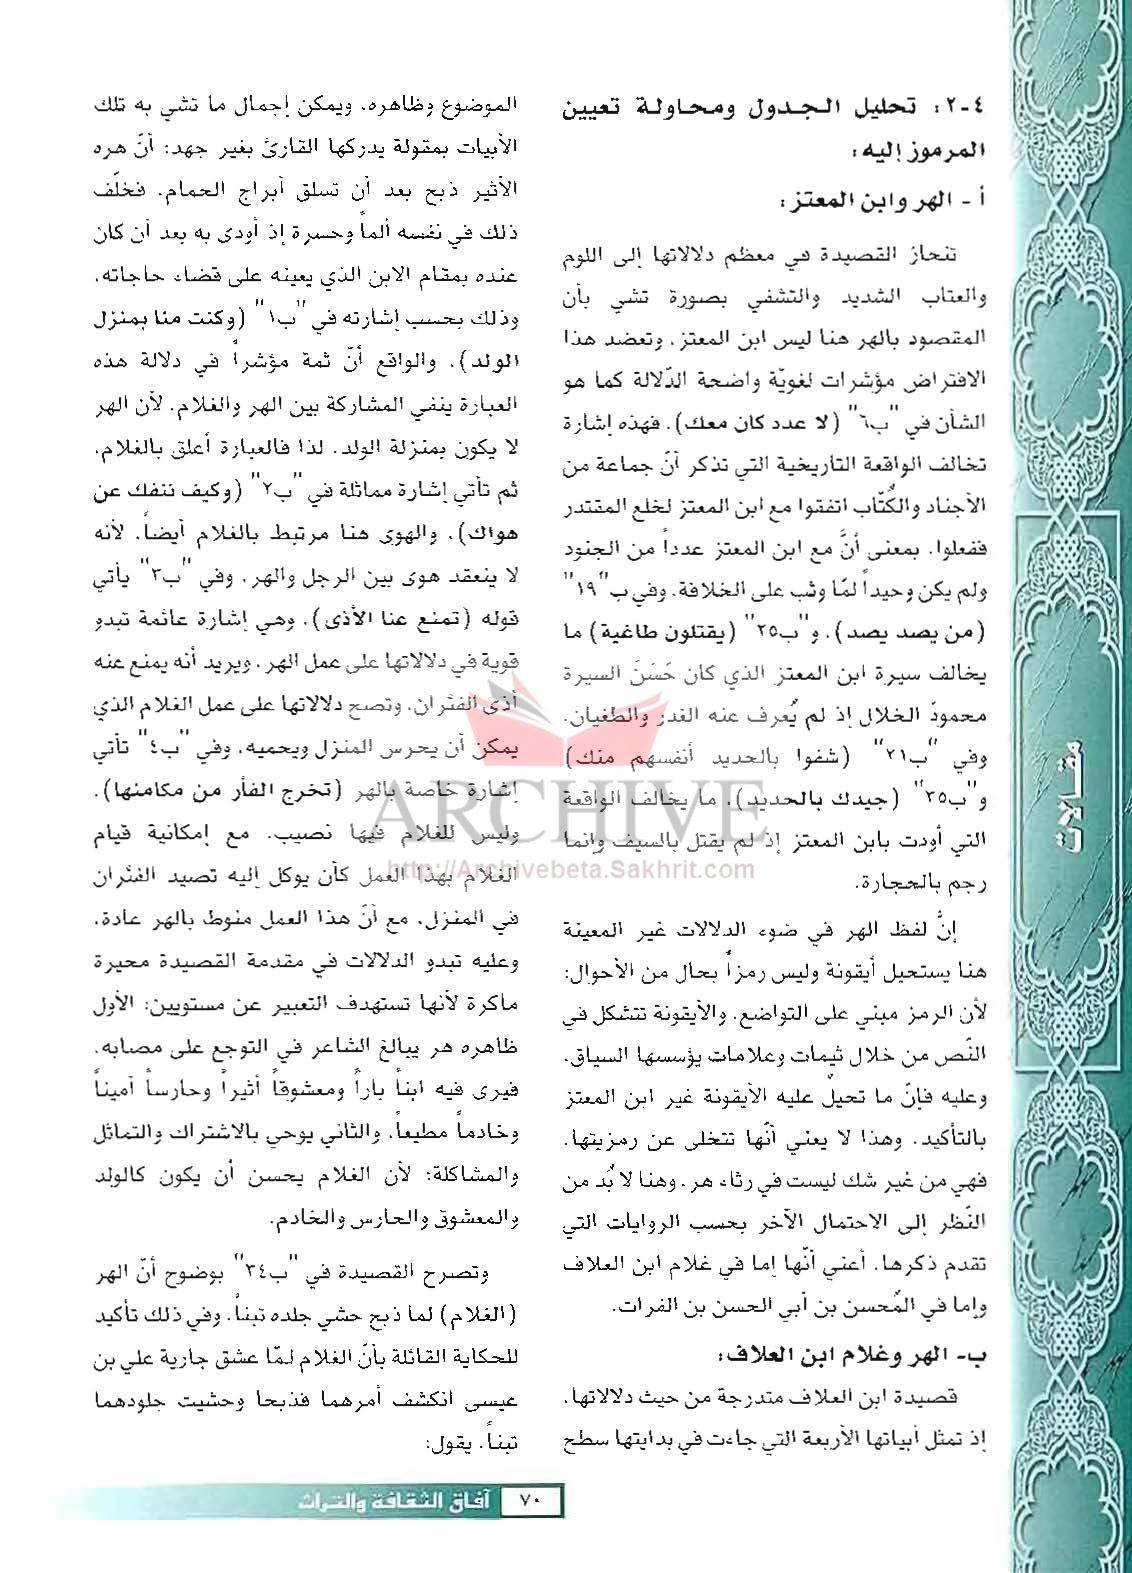 ٤-٢: تحليل الجدول ومحاولة تعيين
المرموز إليه:
أ - الهر وابن المعتز:
تنحاز القصيدة في معظم دلالاتها إلى اللوم
والعتاب الشديد والتشفي بصورة تشي بأن
المقصود بالهر هنا ليس ابن المعتز. وتعضد هذا
الافتراض مؤشرات لغويّة واضحة الدّلالة كما هو
الشأن في "ب٦" (لا عدد كان معك). فهذه إشارة
تخالف الواقعة التاريخية التي تذكر أنّ جماعة من
الأجناد والكُتّاب اتفقوا مع ابن المعتز لخلع المقتدر
ففعلوا. بمعنى أنَّ مع ابن المعتز عدداً من الجنود
ولم يكن وحيداً لمّا وثب على الخلافة. وفي ب"١٩"
(من يصد يصد). و"ب٢٥" (يقتلون طاغية) ما
يخالف سيرة ابن المعتز الذي كان حَسَنَ السيرة
محمودَ الخلال إذ لم يُعرف عنه الغدر والطغيان.
وفي "ب٢١" (شفوا بالحديد أنفسهم منك)
و"ب٣٥" (جيدك بالحديد). ما يخالف الواقعة
التي أودت بابن المعتز إذ لم يقتل بالسيف وانما
رجم بالحجارة.
إنَّ لفظ الهر في ضوء الدلالات غير المعينة
هنا يستحيل أيقونة وليس رمزاً بحال من الأحوال:
لأن الرمز مبني على التواضع. والأيقونة تتشكل في
النّص من خلال ثيمات وعلامات يؤسسها السياق.
وعليه فإنّ ما تحيلُ عليه الأيقونة غير ابن المعتز
بالتأكيد. وهذا لا يعني أنّها تتخلى عن رمزيتها.
فهي من غير شك ليست في رثاء هر. وهنا لا بُد من
النّظر إلى الاحتمال الآخر بحسب الروايات التي
تقدم ذكرها. أعني أنّها إما في غلام ابن العلاف
وإما في المُحسن بن أبي الحسن بن الفرات.
ب- الهر وغلام ابن العلاف:
قصيدة ابن العلاف متدرجة من حيث دلالاتها.
إذ تمثل أبياتها الأربعة التي جاءت في بدايتها سطح
الموضوع وظاهره. ويمكن إجمال ما تشي به تلك
الأبيات بمقولة يدركها القارئ بغير جهد: أنّ هره
الأثير ذبح بعد أن تسلق أبراج الحمام. فخلّف
ذلك في نفسه ألماً وحسرة إذ أودى به بعد أن كان
عنده بمقام الابن الذي يعينه على قضاء حاجاته.
وذلك بحسب إشارته في "ب١" (وكنت منا بمنزل
الولد). والواقع أنّ ثمة مؤشراً في دلالة هذه
العبارة ينفي المشاركة بين الهر والغلام. لأن الهر
لا يكون بمنزلة الولد. لذا فالعبارة أعلق بالغلام.
ثم تأتي إشارة مماثلة في "ب٢" (وكيف ننفك عن
هواك). والهوى هنا مرتبط بالغلام أيضاً. لأنه
لا ينعقد هوى بين الرجل والهر. وفي "ب٣" يأتي
قوله (تمنع عنا الأذى). وهي إشارة عائمة تبدو
قوية في دلالاتها على عمل الهر. ويريد أنه يمنع عنه
أذى الفئران. وتصح دلالاتها على عمل الغلام الذي
يمكن أن يحرس المنزل ويحميه. وفي "ب٤" تأتي
إشارة خاصة بالهر (تخرج الفأر من مكامنها).
وليس للغلام فيها نصيب. مع إمكانية قيام
الغلام بهذا العمل كأن يوكل إليه تصيد الفئران
في المنزل. مع أنّ هذا العمل منوط بالهر عادة.
وعليه تبدو الدلالات في مقدمة القصيدة محيرة
ماكرة لأنها تستهدف التعبير عن مستويين: الأول
ظاهره هر يبالغ الشاعر في التوجع على مصابه.
فيرى فيه ابناً باراً ومعشوقاً أثيراً وحارساً أميناً
وخادماً مطيعاً. والثاني يوحي بالاشتراك والتماثل
والمشاكلة: لأن الغلام يحسن أن يكون كالولد
والمعشوق والحارس والخادم.
وتصرح القصيدة في "ب٣٤" بوضوح أنّ الهر
(الغلام) لما ذبح حشي جلده تبناً. وفي ذلك تأكيد
للحكاية القائلة بأنّ الغلام لمّا عشق جارية علي بن
عيسى انكشف أمرهما فذبحا وحشيت جلودهما
تبناً. يقول:
مقالات
ARCHIVE
http://Archivebeta.Sakhrit.com
٧٠ آفاق الثقافة والتراث